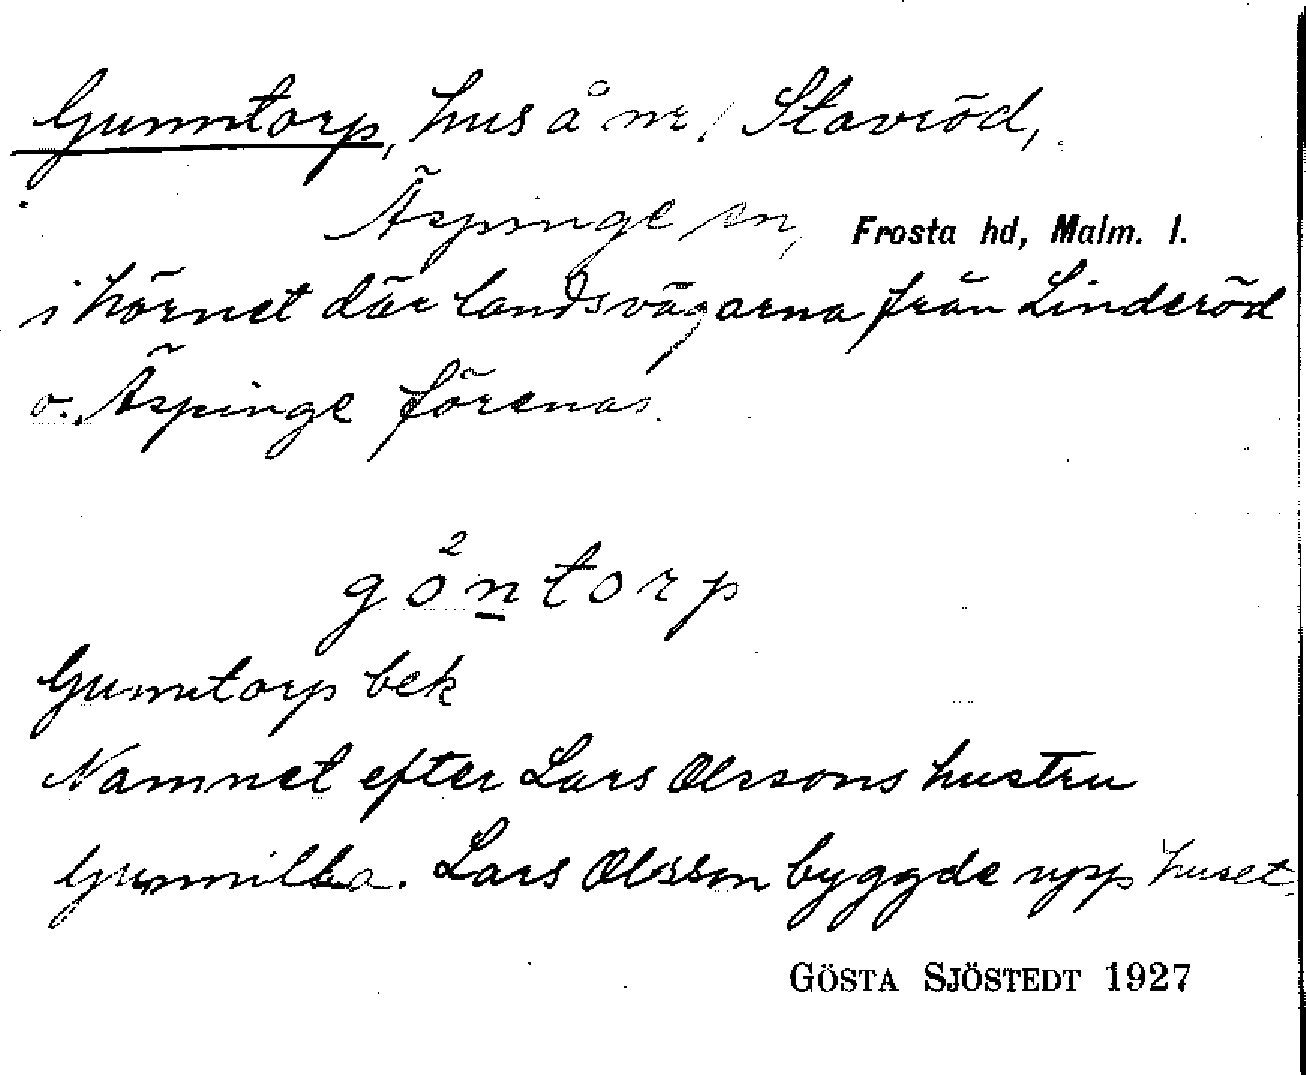 Gunntorp, hus å nr 1 Stavröd,
Äspinge sn, Frosta hd, Malm. l.
i hörnet där landsvägarna från Linderöd
o. Äspinge förenas.
gö²ntorp
Gunntorp bek
Namnet efter Lars Olssons hustru
Gunnilla. Lars Olsson byggde upp huset.
GÖSTA SJÖSTEDT 1927